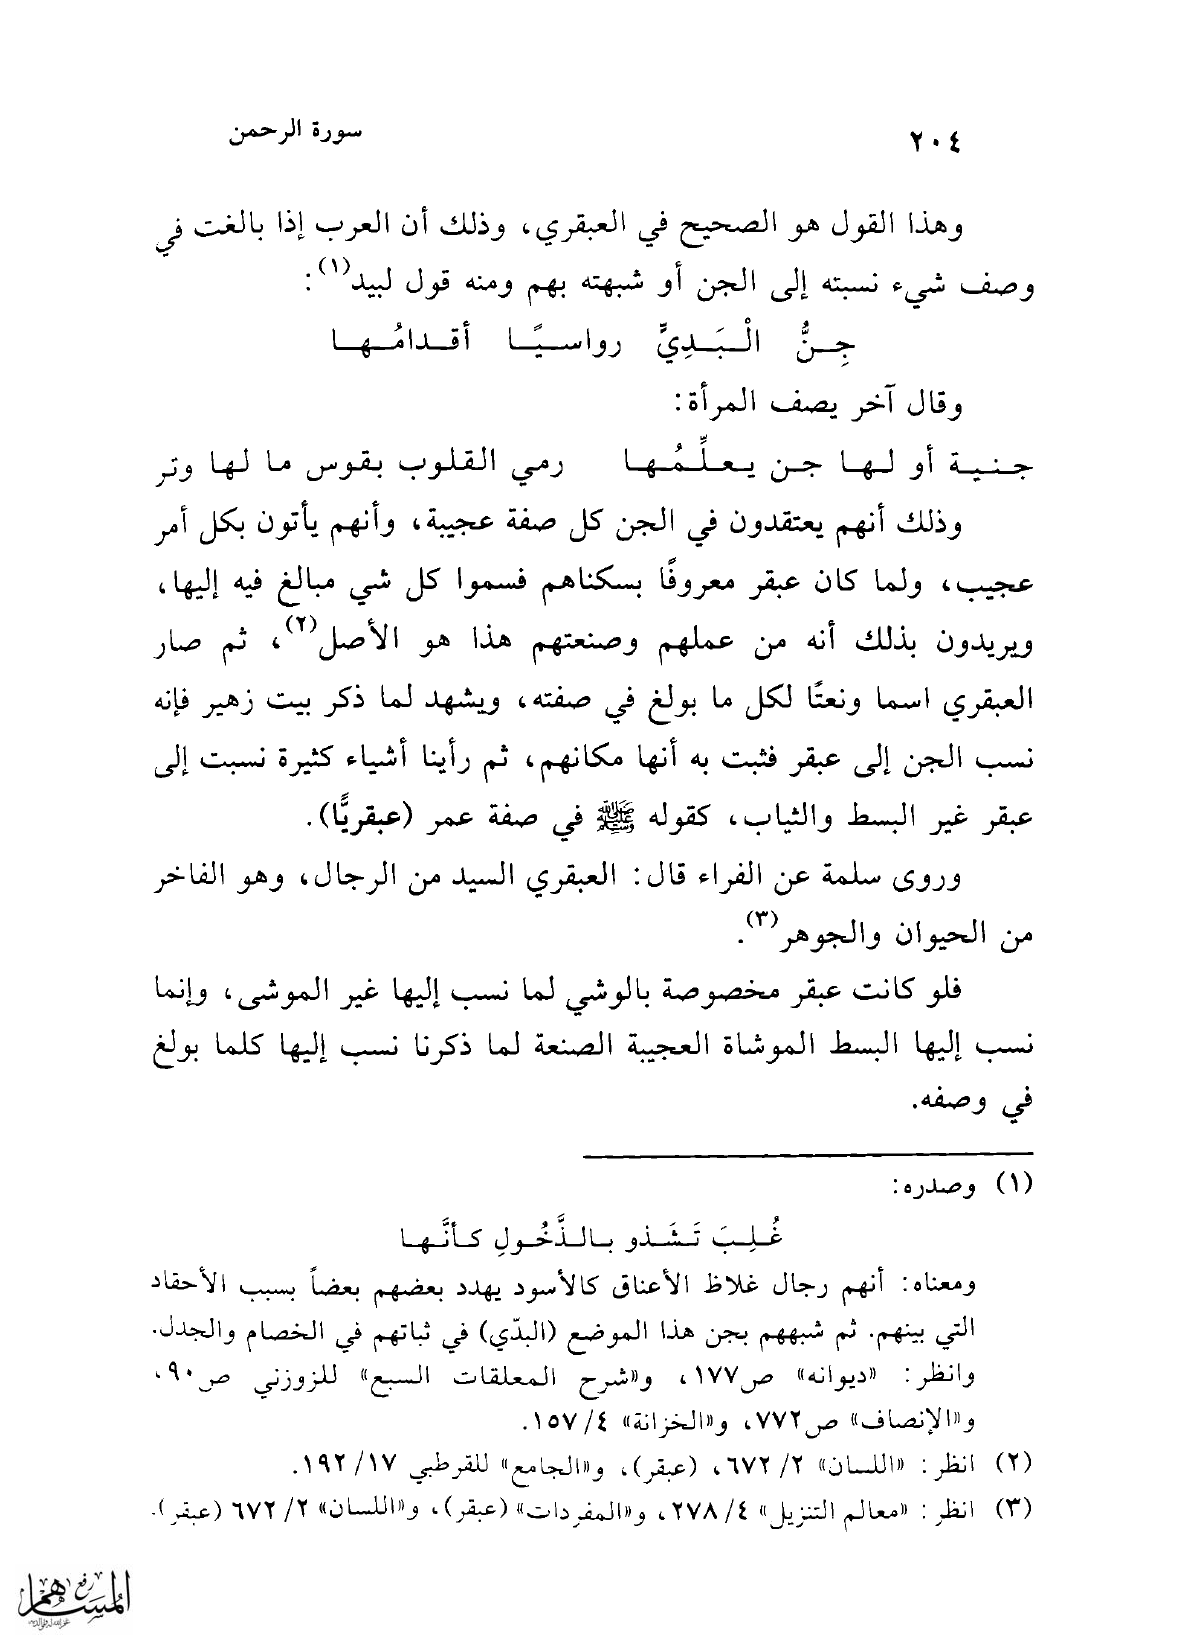 ٢٠٤ سورة الرحمن
وهذا القول هو الصحيح في العبقري، وذلك أن العرب إذا بالغت في
وصف شيء نسبته إلى الجن أو شبهته بهم ومنه قول لبيد(١):
جِنُّ الْبَدِيِّ رواسيًا أقدامُها
وقال آخر يصف المرأة:
جنية أو لها جن يعلِّمُها رمي القلوب بقوس ما لها وتر
وذلك أنهم يعتقدون في الجن كل صفة عجيبة، وأنهم يأتون بكل أمر
عجيب، ولما كان عبقر معروفًا بسكناهم فسموا كل شي مبالغ فيه إليها،
ويريدون بذلك أنه من عملهم وصنعتهم هذا هو الأصل(٢)، ثم صار
العبقري اسما ونعتًا لكل ما بولغ في صفته، ويشهد لما ذكر بيت زهير فإنه
نسب الجن إلى عبقر فثبت به أنها مكانهم، ثم رأينا أشياء كثيرة نسبت إلى
عبقر غير البسط والثياب، كقوله ﷺ في صفة عمر (عبقريًّا).
وروى سلمة عن الفراء قال: العبقري السيد من الرجال، وهو الفاخر
من الحيوان والجوهر(٣).
فلو كانت عبقر مخصوصة بالوشي لما نسب إليها غير الموشى، وإنما
نسب إليها البسط الموشاة العجيبة الصنعة لما ذكرنا نسب إليها كلما بولغ
في وصفه.
(١) وصدره:
غُلِبَ تَشَذو بالذَّحُولِ كأنَّها
ومعناه: أنهم رجال غلاظ الأعناق كالأسود يهدد بعضهم بعضاً بسبب الأحقاد
التي بينهم. ثم شبههم بجن هذا الموضع (البدّي) في ثباتهم في الخصام والجدل.
وانظر: «ديوانه» ص١٧٧، و«شرح المعلقات السبع» للزوزني ص٩٠،
و«الإنصاف» ص٧٧٢، و«الخزانة» ٤/ ١٥٧.
(٢) انظر: «اللسان» ٢/ ٦٧٢، (عبقر)، و«الجامع» للقرطبي ١٧/ ١٩٢.
(٣) انظر: «معالم التنزيل» ٤/ ٢٧٨، و«المفردات» (عبقر)، و«اللسان» ٢/ ٦٧٢ (عبقر).